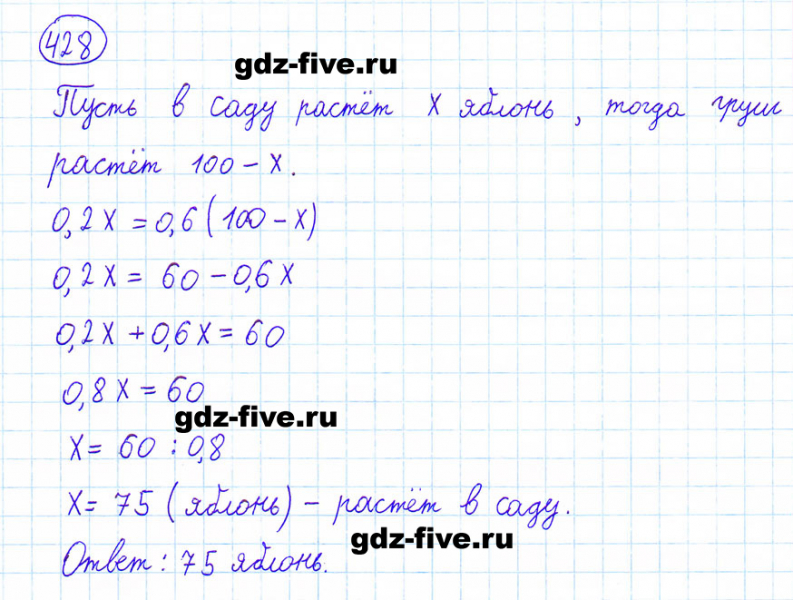 428
gdz-five.ru
Пусть в саду растёт x яблонь, тогда груш
растёт 100 - x.
0,2x = 0,6(100 - x)
0,2x = 60 - 0,6x
0,2x + 0,6x = 60
0,8x = 60
gdz-five.ru
x = 60 : 0,8
x = 75 (яблонь) - растёт в саду.
gdz-five.ru
Ответ: 75 яблонь.